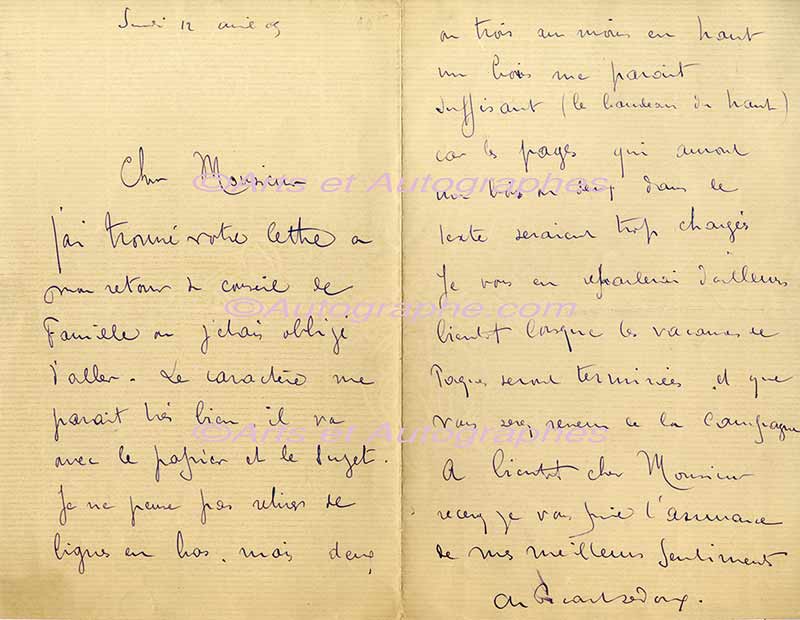 12 avril 09
Cher Monsieur
j'ai trouvé votre lettre a
mon retour de conseil de
Famille ou j'etais obligé
d'aller. Le caractère me
parait très bien il va
avec le papier et le sujet.
Je ne pense pas retirer de
lignes en bas. mais deux
ou trois au moins en haut
un bois me parait
suffisant (le bandeau du haut)
car les pages qui auront
un bois ou deux dans le
texte seraient trop chargés
Je vous en reparlerai d'ailleurs
bientot lorsque les vacances de
Paques seront terminées et que
vous serez revenu de la Campagne
A bientot cher Monsieur
recevez je vous prie l'assurance
de mes meilleurs Sentiments
Picart le Doux.
©Arts et Autographes
©Autographe.com
©Arts et Autographes